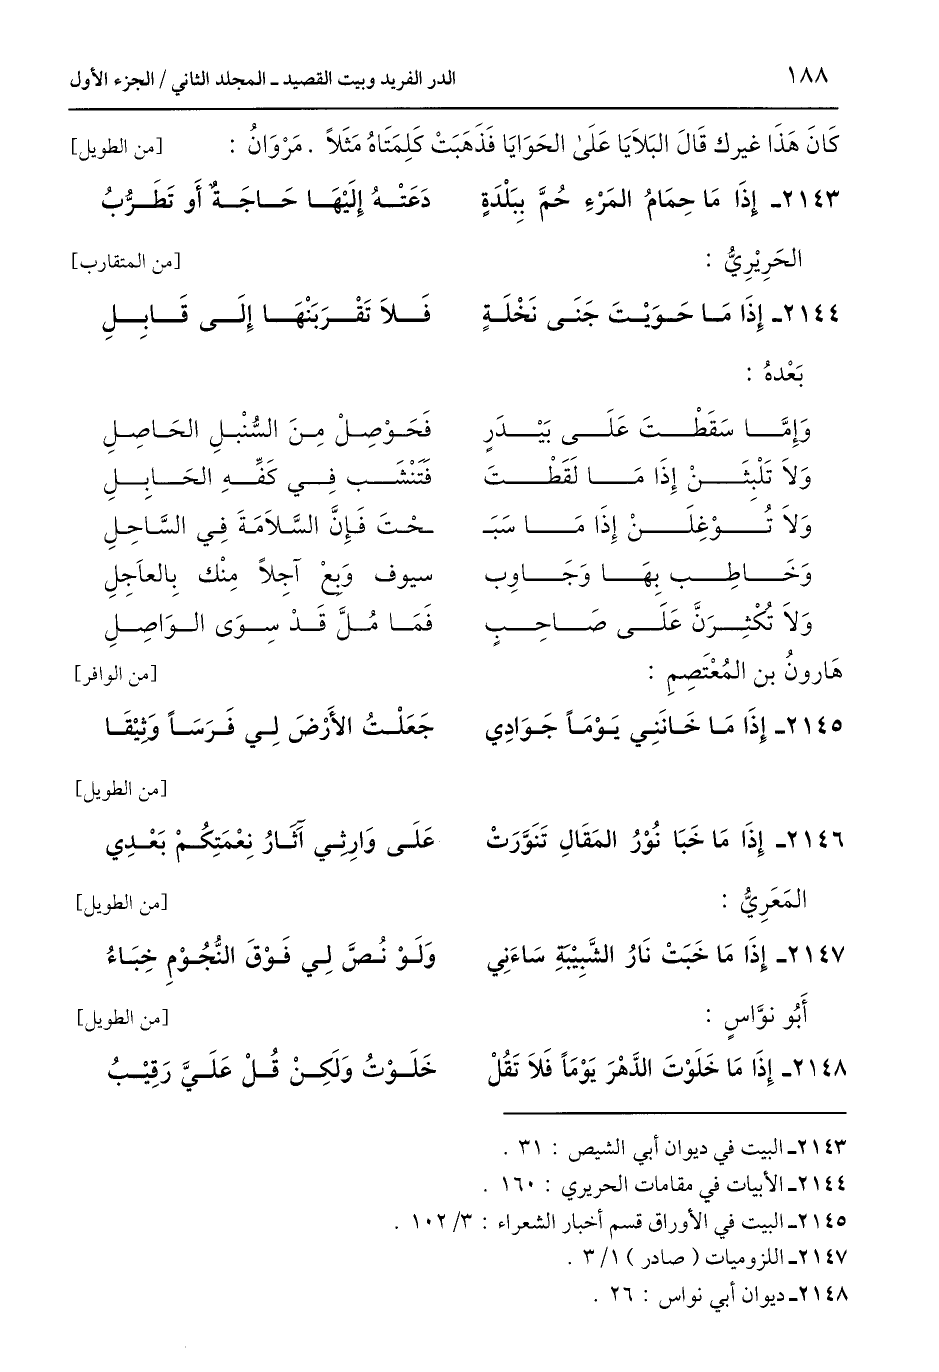 ١٨٨ الدر الفريد وبيت القصيد ـ المجلد الثاني / الجزء الأول
كَانَ هَذَا غيرك قَالَ البَلاَيَا عَلَىٰ الحَوَايَا فَذَهَبَتْ كَلِمَتَاهُ مَثَلاً . مَرْوَانُ : [من الطويل]
٢١٤٣ـ إِذَا مَا حِمَامُ المَرْءِ حُمَّ بِبَلْدَةٍ دَعَتْهُ إِلَيْهَا حَاجَةٌ أَو تَطَرُّبُ
الحَرِيْرِيُّ : [من المتقارب]
٢١٤٤ـ إِذَا مَا حَوَيْتَ جَنَى نَخْلَةٍ فَلاَ تَقْرَبَنْهَا إِلَى قَابِلِ
بَعْدهُ :
وَإِمَّا سَقَطْتَ عَلَى بَيْدَرٍ فَحَوْصِلْ مِنَ السُّنْبلِ الحَاصِلِ
وَلاَ تَلْبثَنْ إِذَا مَا لَقَطْتَ فَتَنْشَب فِي كَفِّهِ الحَابِلِ
وَلاَ تُوْغِلَنْ إِذَا مَا سَبَـ ـحْتَ فَإِنَّ السَّلاَمَةَ فِي السَّاحِلِ
وَخَاطِب بِهَا وَجَاوِب سيوف وَبعْ آجِلاً مِنْك بِالعاَجِلِ
وَلاَ تُكْثِرَنَّ عَلَى صَاحِبٍ فَمَا مُلَّ قَدْ سِوَى الوَاصِلِ
هَارونُ بن المُعْتَصِمِ : [من الوافر]
٢١٤٥ـ إِذَا مَا خَانَنِي يَوْمَاً جَوَادِي جَعَلْتُ الأَرْضَ لِي فَرَسَاً وَثِيْقَا
[من الطويل]
٢١٤٦ـ إِذَا مَا خَبَا نُوْرُ المَقَالِ تَنَوَّرَتْ عَلَى وَارِثِي آثَارُ نِعْمَتِكُمْ بَعْدِي
المَعَرِيُّ : [من الطويل]
٢١٤٧ـ إِذَا مَا خَبَتْ نَارُ الشَّبِيْبَةِ سَاءَنِي وَلَوْ نُصَّ لِي فَوْقَ النُّجُوْمِ خِبَاءُ
أَبُو نوَّاسٍ : [من الطويل]
٢١٤٨ـ إِذَا مَا خَلَوْتَ الدَّهْرَ يَوْمَاً فَلاَ تَقُلْ خَلَوْتُ وَلَكِنْ قُلْ عَلَيَّ رَقِيْبُ
٢١٤٣ـ البيت في ديوان أبي الشيص : ٣١ .
٢١٤٤ـ الأبيات في مقامات الحريري : ١٦٠ .
٢١٤٥ـ البيت في الأوراق قسم أخبار الشعراء : ٣/ ١٠٢ .
٢١٤٧ـ اللزوميات ( صادر ) ١/ ٣ .
٢١٤٨ـ ديوان أبي نواس : ٢٦ .